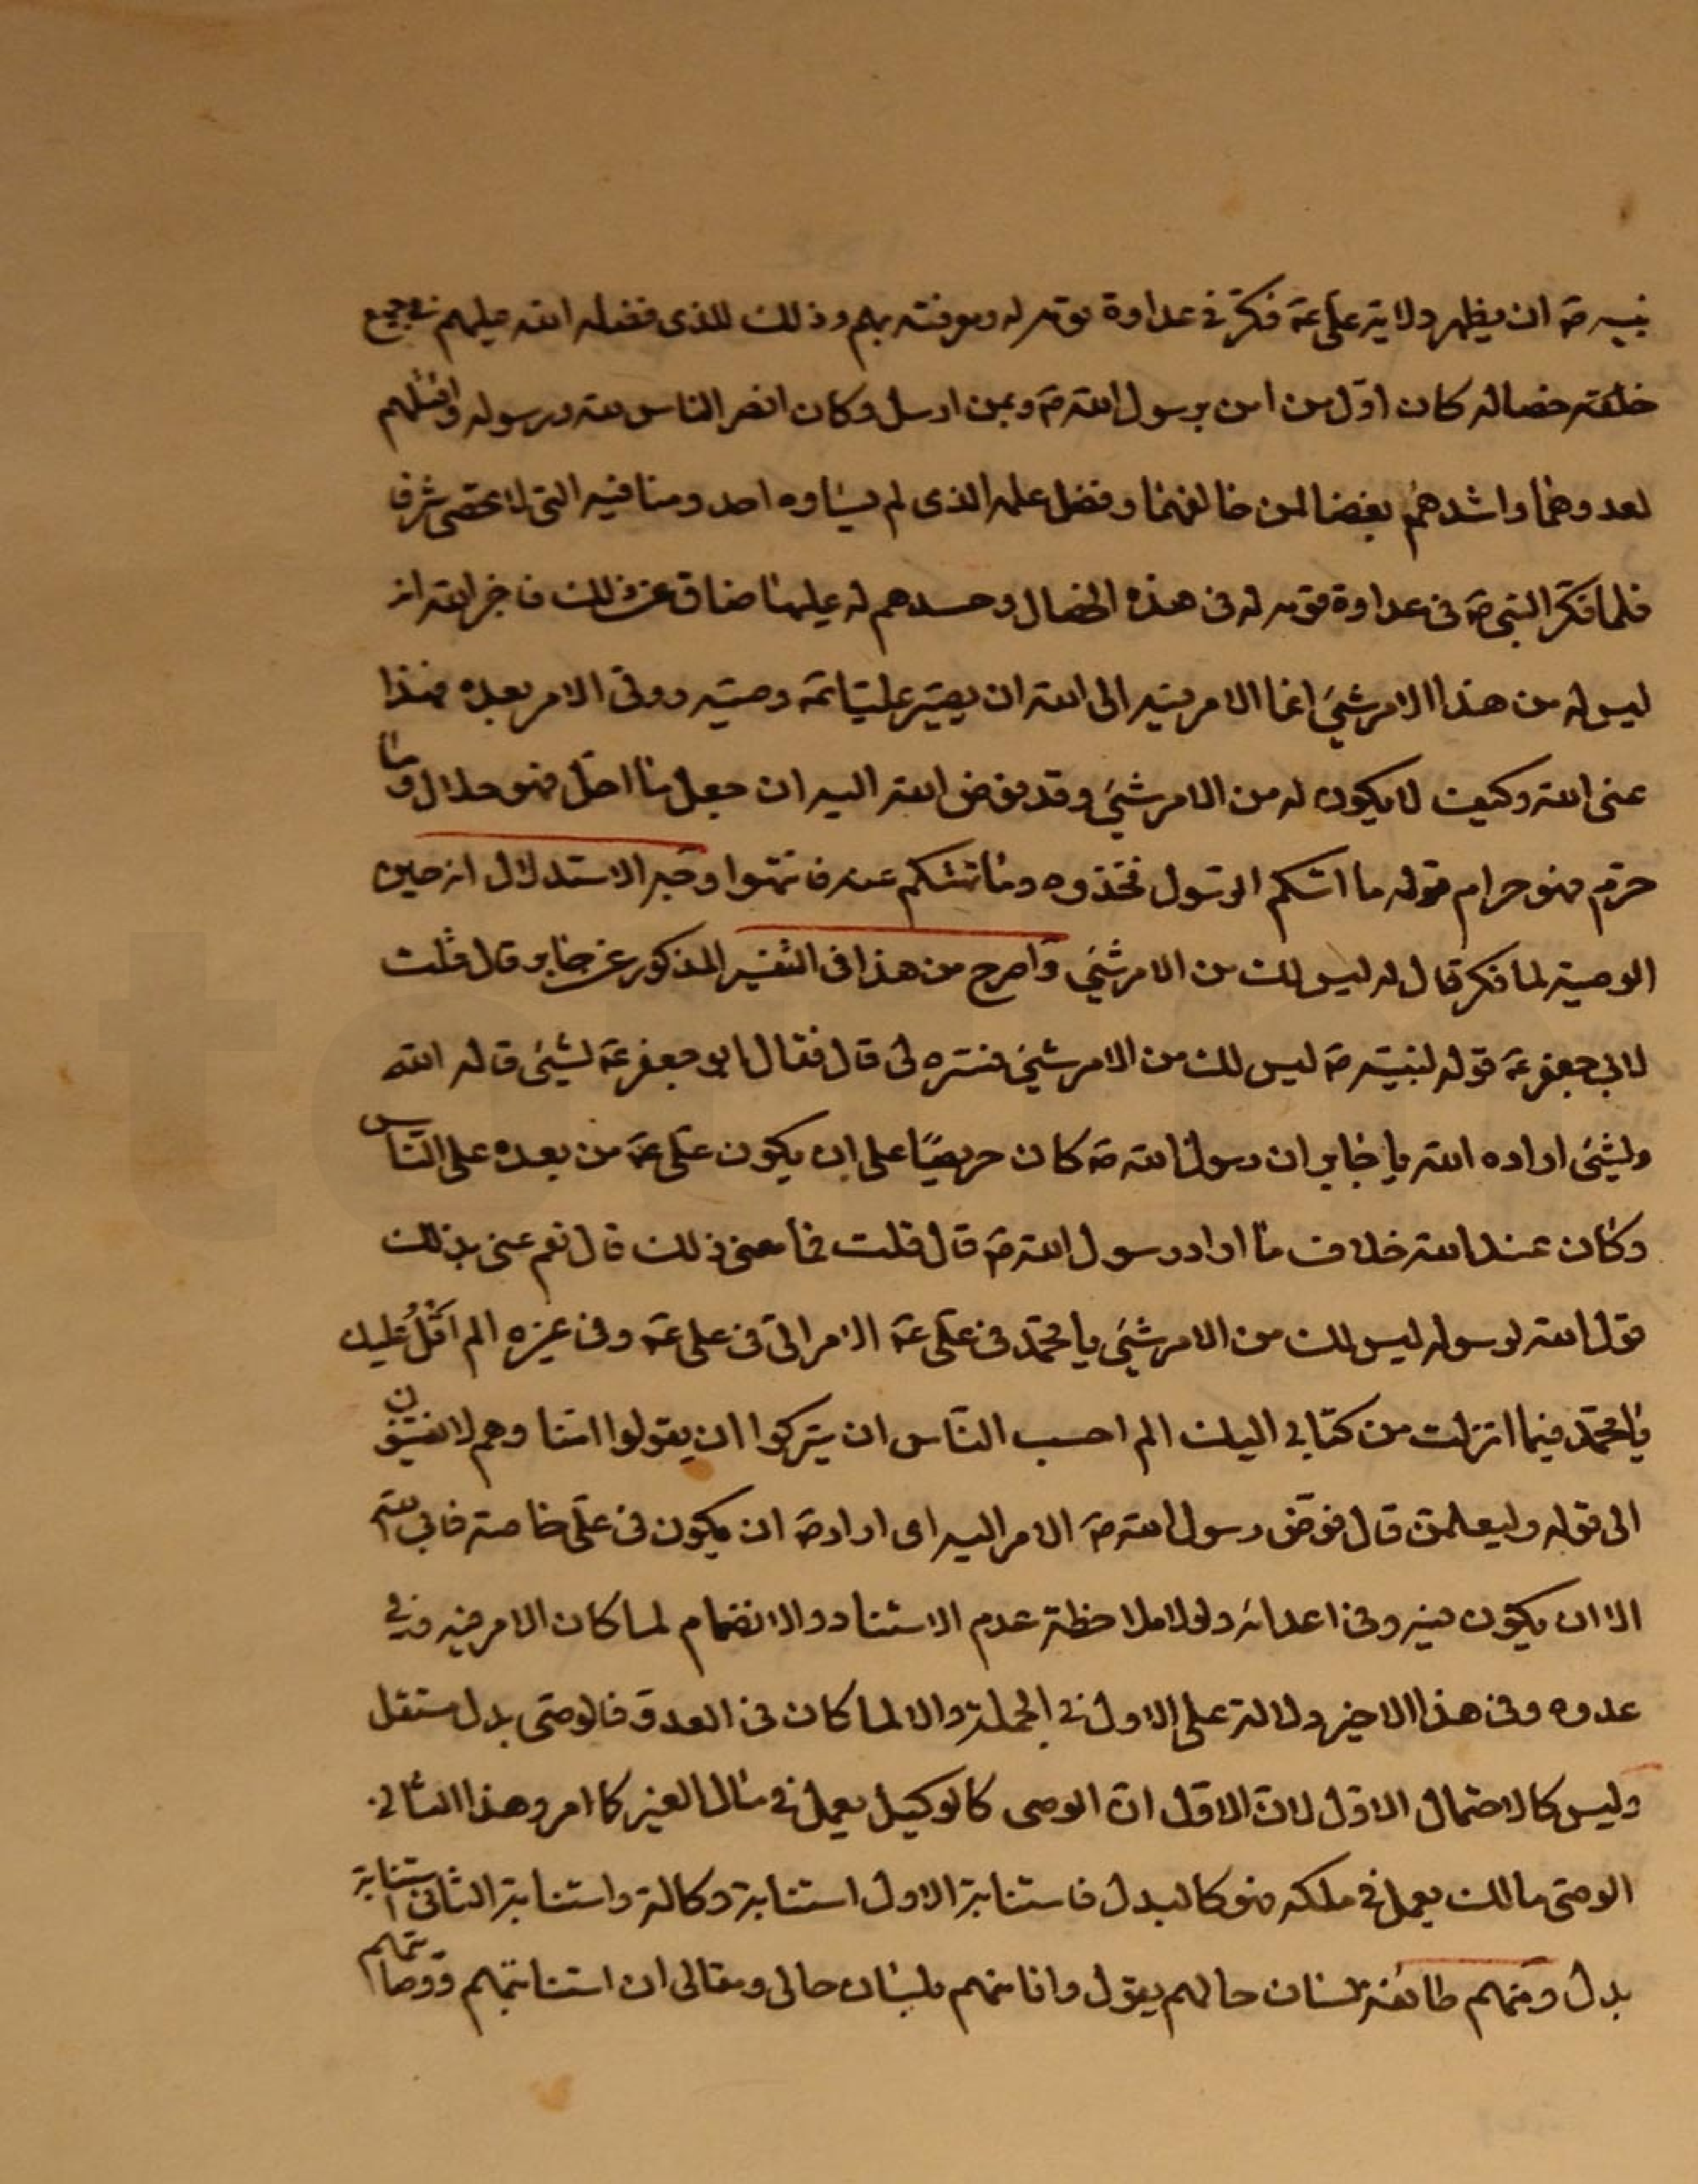 نبيه صه ان يظهر ولاية علي عه فكر في عداوة قومه له ومعرفته بهم وذلك للذى فضله الله عليهم في جميع
خلقته خصاله كان اوّل من امن برسول الله صه وبمن ارسل وكان انصر الناس لله ورسوله واقتلهم
لعدوهما واشدهم بغضا لمن خالفهما وفضل علمه الذى لم يساوه احد ومناقبه التى لا تحصى شرفا
فلما فكر النبى صه فى عداوة قومه له فى هذه الخصال وحسدهم له عليها ضاق عن ذلك فاخبر الله انه
ليس له من هذا الامر شيئ انما الامر فيه الى الله ان يصيّر عليّا عه وصيه وولى الامر بعده فهذا
عنى الله وكيف لا يكون له من الامر شيئ وقد فوض الله اليه ان جعل ما احل فهو حلال وما
حرّم فهو حرام قوله ما اتيكم الرسول فخذوه وما نهيكم عنه فانتهوا وجه الاستدلال انه حين
الوصية لما فكر قال له ليس لك من الامر شيئ واصرح من هذا فى التفسير المذكور عن جابر قال قلت
لابي جعفر عه قوله لنبيّه صه ليس لك من الامر شيئ فسّره لى قال فقال ابو جعفر عه لشيئ قاله الله
ولشيئ اراده الله يا جابر ان رسول الله صه كان حريصًا على ان يكون علي عه من بعده على النّاس
وكان عند الله خلاف ما اراد رسول الله صه قال قلت فما معنى ذلك قال نعم عنى بذلك
قول الله لرسوله ليس لك من الامر شيئ يا محمّد فى علي عه الامر الىّ فى علي عه وفى غيره الم اَتْلُ عليك
يا محمّد فيما انزلت من كتابي اليك الم احسب النّاس ان يتركوا ان يقولوا امنّا وهم لا يفتنون
الى قوله وليعلمنّ قال فوّض رسول الله صه الامر اليه اى اراد صه ان يكون فى علي خاصة فابى الله
الا ان يكون فيه وفى اعدائه ولولا ملاحظة عدم الاستناد والانضمام لما كان الامر فيه وفي
عدوه وفى هذا الاخير دلالة على الاول في الجملة والا لما كان فى العدو فالوصى بدل مستقل
وليس كالاحتمال الاوّل لانّ الاوّل انّ الوصى كالوكيل يعمل في مال الغير كما مر وهذا الثاني
الوصى مالك يعمل في ملكه فهو كالبدل فاستنابة الاول استنابة وكالة واستنابة الثاني استنابة
بدل ومنهم طائفة لسان حالهم يقول وانا منهم بلسان حالى ومقالى ان استنابتهم ووصايتهم